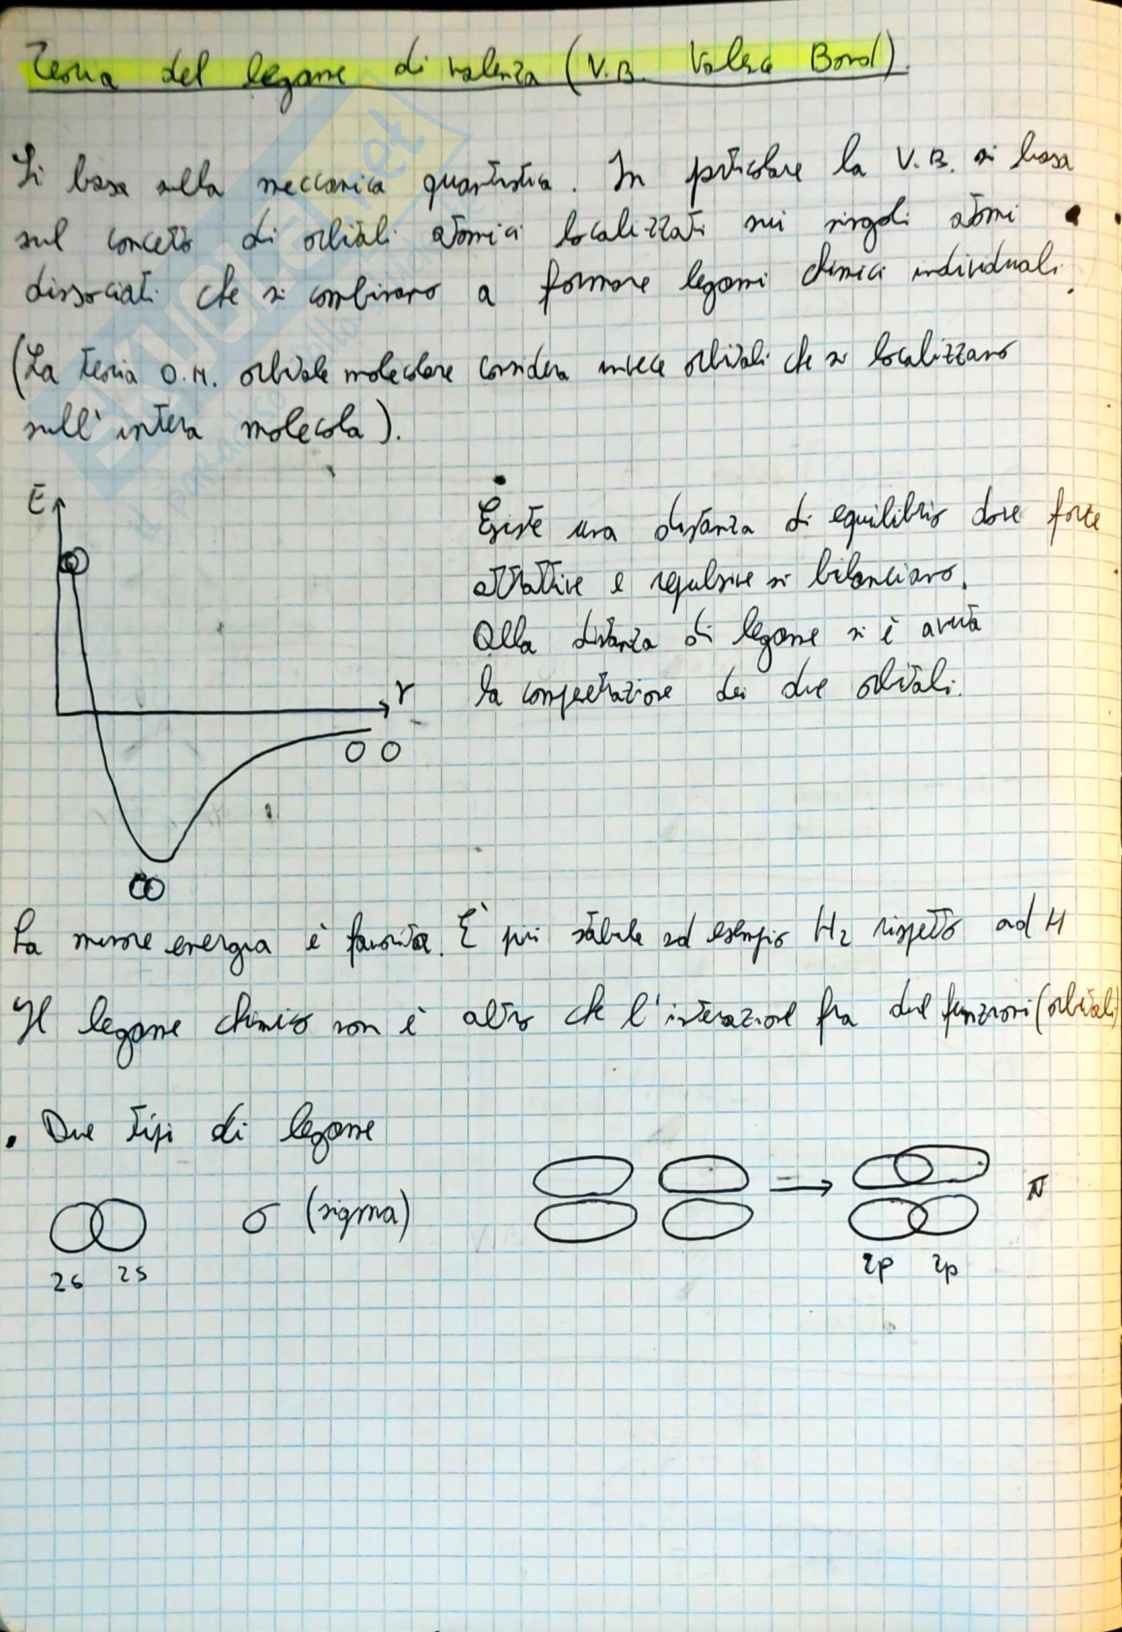 Teoria del legame di valenza (V.B. Valence Bond).
Si basa sulla meccanica quantistica. In particolare la V.B. si basa
sul concetto di orbitali atomici localizzati sui singoli atomi
dissociati che si combinano a formare legami chimici individuali.
(La teoria O.M. orbitale molecolare considera invece orbitali che si localizzano
sull'intera molecola).
E
Esiste una distanza di equilibrio dove forze
attrattive e repulsive si bilanciano.
Alla distanza di legame si è avuta
la compenetrazione dei due orbitali.
r
La minore energia è favorita. È più stabile ad esempio H2 rispetto ad H
Il legame chimico non è altro che l'interazione fra due funzioni (orbitali)
• Due tipi di legame
σ (sigma)
π
2s 2s
2p 2p